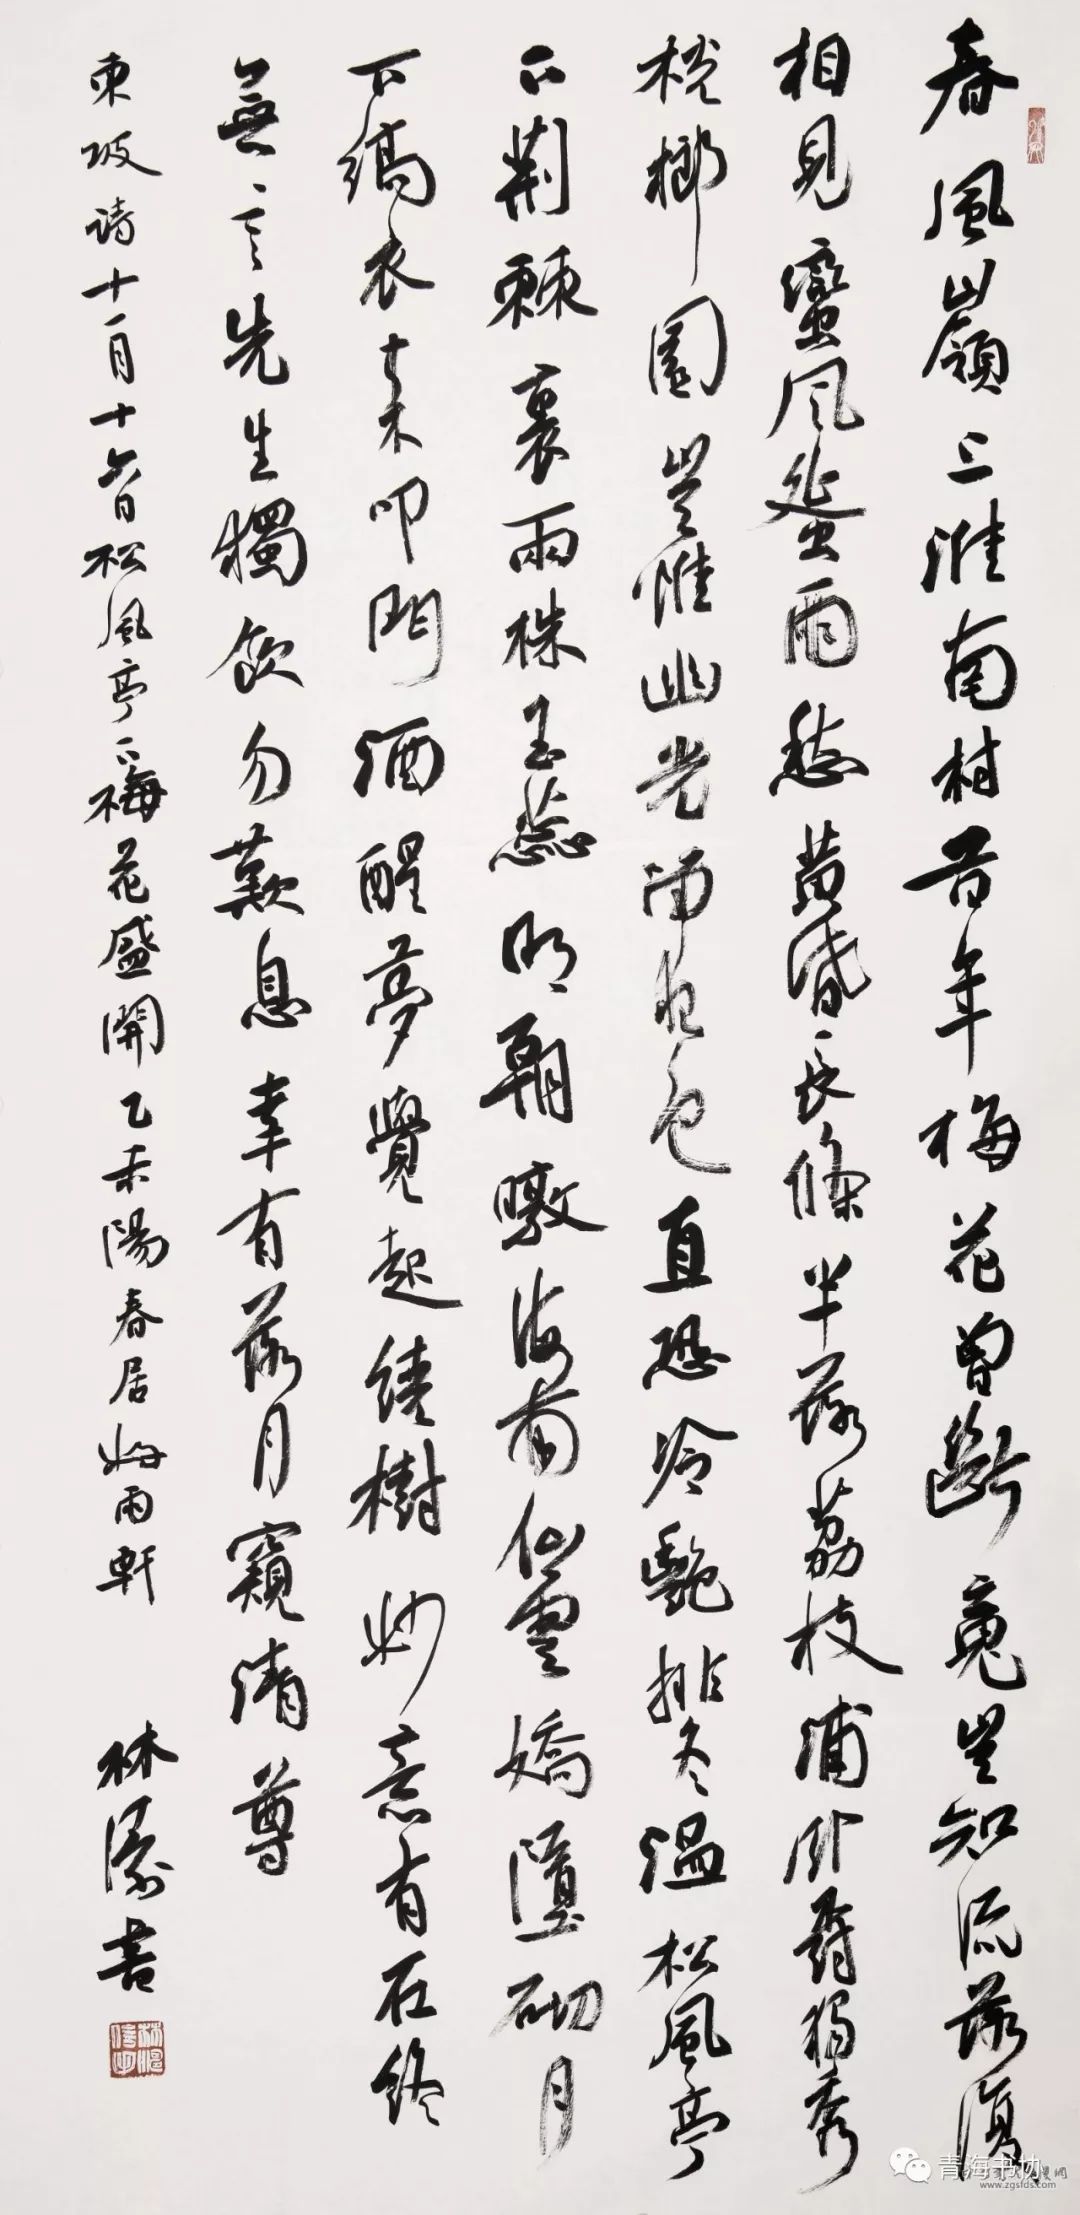 春風嶺上淮南村昔年梅花曾斷魂豈知流落復
相見蠻風蜑雨愁黃昏長條半落荔枝浦臥樹獨秀
桄榔園豈惟幽光留夜色直恐冷艷排冬溫松風亭
下荆棘裏兩株玉蕊明朝暾海南仙雲嬌墮砌月
下縞衣来叩門酒醒夢覺起繞樹妙意有在終
無言先生獨飲勿歎息幸有落月窺清尊
東坡詩十一月十六日松風亭下梅花盛開乙未陽春居好雨軒 林書
青海书协
www.zgsfds.com